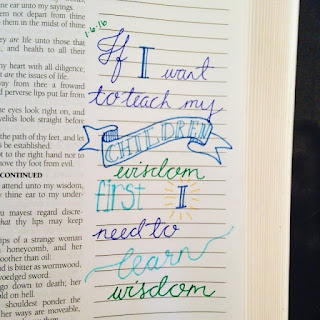 ine ear unto my sayings.
em not depart from thine
m in the midst of thine
ey are life unto those that
, and health to all their
y heart with all diligence;
are the issues of life.
way from thee a froward
d perverse lips put far from
ne eyes look right on, and
yelids look straight before
the path of thy feet, and let
s be established.
ot to the right hand nor to
ove thy foot from evil.
CONTINUED
attend unto my wisdom,
hine ear to my under-
u mayest regard discre-
hat thy lips may keep
ips of a strange woman
honeycomb, and her
oother than oil:
d is bitter as wormwood,
voedged sword.
go down to death; her
old on hell.
shouldest ponder the
her ways are moveable,
1·6·16
If I want
to teach my
CHILDREN
wisdom
first I
need to
learn
wisdom